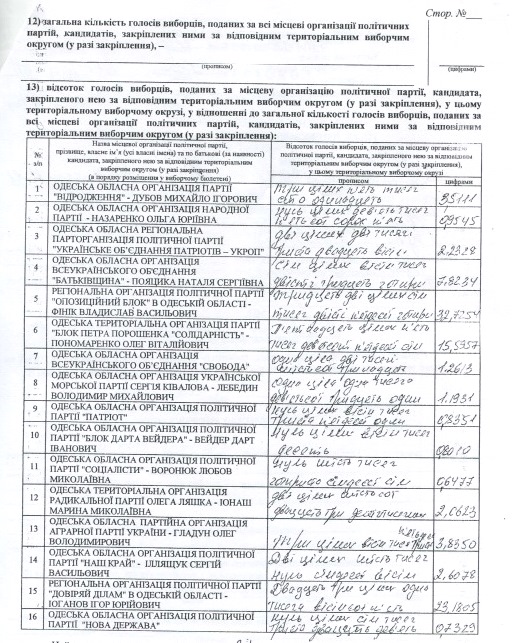 Стор. №___
12) загальна кількість голосів виборців, поданих за всі місцеві організації політичних
партій, кандидатів, закріплених ними за відповідним територіальним виборчим
округом (у разі закріплення), –
(прописом)
(цифрами)
13) відсоток голосів виборців, поданих за місцеву організацію політичної партії, кандидата,
закріпленого нею за відповідним територіальним виборчим округом (у разі закріплення), у цьому
територіальному виборчому окрузі, у відношенні до загальної кількості голосів виборців, поданих за
всі місцеві організації політичних партій, кандидатів, закріплених ними за відповідним
територіальним виборчим округом (у разі закріплення):
№ з/п
Назва місцевої організації політичної партії,
прізвище, власне ім'я (усі власні імена) та по батькові (за наявності)
кандидата, закріпленого нею за відповідним територіальним
виборчим округом (у разі закріплення)
(в порядку розміщення у виборчому бюлетені)
Відсоток голосів виборців, поданих за місцеву організацію
політичної партії, кандидата, закріпленого нею за відповідним
територіальним виборчим округом (у разі закріплення),
у цьому територіальному виборчому окрузі
прописом
цифрами
1 ОДЕСЬКА ОБЛАСНА ОРГАНІЗАЦІЯ ПАРТІЇ
"ВІДРОДЖЕННЯ" - ДУБОВ МИХАЙЛО ІГОРОВИЧ
Три цілих п'ять тисяч
сто одинадцять
3,5111
2 ОДЕСЬКА ОБЛАСНА ОРГАНІЗАЦІЯ НАРОДНОЇ
ПАРТІЇ - НАЗАРЕНКО ОЛЬГА ЮРІЇВНА
нуль цілих дев'ять тисяч
п'ятсот сорок п'ять
0,9545
3 ОДЕСЬКА ОБЛАСНА РЕГІОНАЛЬНА
ПАРТОРГАНІЗАЦІЯ ПОЛІТИЧНОЇ ПАРТІЇ
"УКРАЇНСЬКЕ ОБ'ЄДНАННЯ ПАТРІОТІВ – УКРОП"
дві цілих дві тисячі
триста двадцять вісім
2,2328
4 ОДЕСЬКА ОБЛАСНА ОРГАНІЗАЦІЯ
ВСЕУКРАЇНСЬКОГО ОБ'ЄДНАННЯ
"БАТЬКІВЩИНА" - ПОЯЦИКА НАТАЛЯ СЕРГІЇВНА
Сім цілих вісім тисяч
двісті тридцять чотири
7,8234
5 РЕГІОНАЛЬНА ОРГАНІЗАЦІЯ ПОЛІТИЧНОЇ ПАРТІЇ
"ОПОЗИЦІЙНИЙ БЛОК" В ОДЕСЬКІЙ ОБЛАСТІ -
ФІНІК ВЛАДИСЛАВ ВАСИЛЬОВИЧ
тридцять дві цілих сім
тисяч двісті п'ятдесят чотири
32,7254
6 ОДЕСЬКА ТЕРИТОРІАЛЬНА ОРГАНІЗАЦІЯ ПАРТІЇ
"БЛОК ПЕТРА ПОРОШЕНКА "СОЛІДАРНІСТЬ" -
ПОНОМАРЕНКО ОЛЕГ ВІТАЛІЙОВИЧ
П'ятнадцять цілих п'ять
тисяч
п'ятдесят сім
7 ОДЕСЬКА ОБЛАСНА ОРГАНІЗАЦІЯ
ВСЕУКРАЇНСЬКОГО ОБ'ЄДНАННЯ "СВОБОДА"
одна ціла дві тисячі
шістсот тринадцять
1,2613
8 ОДЕСЬКА ОБЛАСНА ОРГАНІЗАЦІЯ УКРАЇНСЬКОЇ
МОРСЬКОЇ ПАРТІЇ СЕРГІЯ КІВАЛОВА - ЛЕБЕДИН
ВОЛОДИМИР МИХАЙЛОВИЧ
одна ціла одна тисяча
дев'ятсот тридцять один
1,1931
9 ОДЕСЬКА ОБЛАСНА ОРГАНІЗАЦІЯ ПОЛІТИЧНОЇ
ПАРТІЇ "ПАТРІОТ"
нуль цілих вісім тисяч
триста п'ятдесят один
0,8351
10 ОДЕСЬКА ОБЛАСНА ОРГАНІЗАЦІЯ ПОЛІТИЧНОЇ
ПАРТІЇ "БЛОК ДАРТА ВЕЙДЕРА" - ВЕЙДЕР ДАРТ
ІВАНОВИЧ
нуль цілих вісім тисяч
11 ОДЕСЬКА ОБЛАСНА ОРГАНІЗАЦІЯ ПОЛІТИЧНОЇ
ПАРТІЇ "СОЦІАЛІСТИ" - ВОРОНЮК ЛЮБОВ
МИКОЛАЇВНА
нуль шість тисяч
чотириста сімдесят сім
0,6477
12 ОДЕСЬКА ТЕРИТОРІАЛЬНА ОРГАНІЗАЦІЯ
РАДИКАЛЬНОЇ ПАРТІЇ ОЛЕГА ЛЯШКА - ІОНАШ
МАРИНА МИКОЛАЇВНА
дві цілих шістсот
двадцять три
2,0623
13 ОДЕСЬКА ОБЛАСНА ПАРТІЙНА ОРГАНІЗАЦІЯ
АГРАРНОЇ ПАРТІЇ УКРАЇНИ - ГЛАДУН ОЛЕГ
ВОЛОДИМИРОВИЧ
Три цілих вісім тисяч
3,8350
14 ОДЕСЬКА ОБЛАСНА ОРГАНІЗАЦІЯ ПОЛІТИЧНОЇ
ПАРТІЇ "НАШ КРАЙ" - ІЛЛЯЩУК СЕРГІЙ
ВАСИЛЬОВИЧ
Дві цілих шість тисяч
нуль сімдесят вісім
2,6078
15 РЕГІОНАЛЬНА ОРГАНІЗАЦІЯ ПОЛІТИЧНОЇ ПАРТІЇ
"ДОВІРЯЙ ДІЛАМ" В ОДЕСЬКІЙ ОБЛАСТІ -
ЮГАНОВ ІГОР ЮРІЙОВИЧ
Двадцять три цілих одна
тисяча вісімсот п'ять
23,1805
16 ОДЕСЬКА ОБЛАСНА ОРГАНІЗАЦІЯ ПОЛІТИЧНОЇ
ПАРТІЇ "НОВА ДЕРЖАВА"
нуль цілих сім тисяч
триста двадцять дев'ять
0,7329